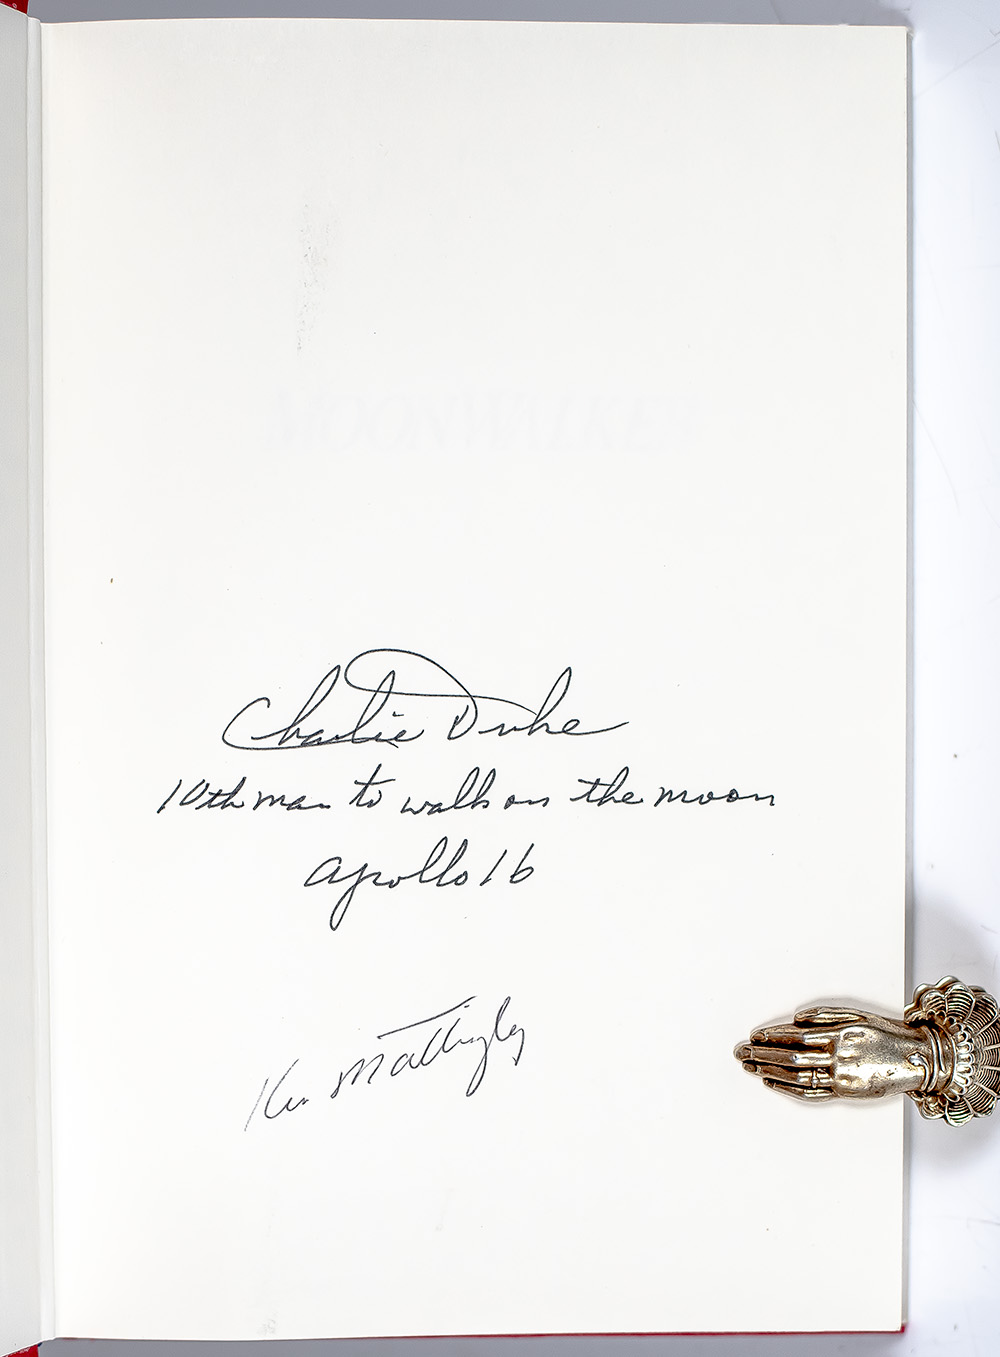 MOONWALKER
Charlie Duke
10th man to walk on the moon
Apollo 16
Ken Mattingly